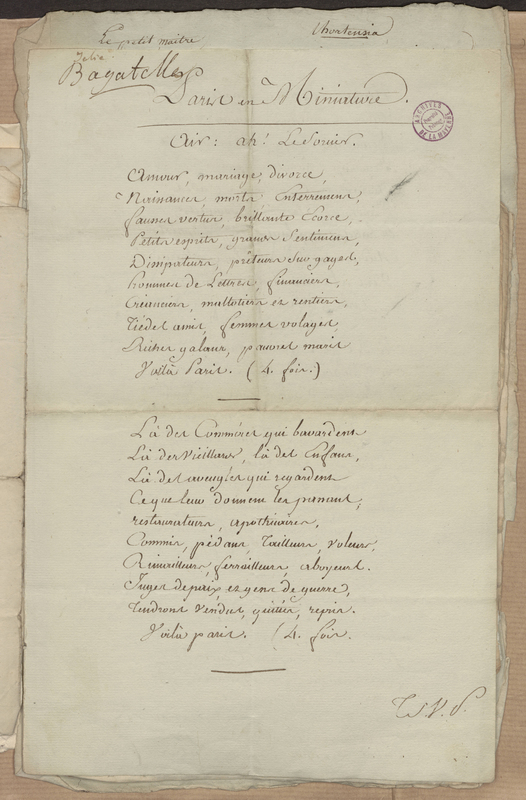 Le petit maitre
L'hortensia
Jolie
Bagatelle
Paris en Miniature.
ARCHIVES DE LA MAYENNE
Air: ah! Le Sorcier.
L'Amour, mariage, divorce,
Naissances, morts, Enterremens,
fausses vertus, brillante Ecorce,
Petits esprits, grands Sentimens,
Dissipateurs, prêteurs Sur gages,
hommes de Lettres, financiers,
Créanciers, maltotiers et rentiers,
Tiédes amis, femmes volages
Riches galans, pauvres maris
Voilà Paris. (4. fois.)
Là des Commères qui bavardent
Là des Vieillards, là des Enfans,
Là des aveugles qui regardent
Ce que leur donnent les passans,
restaurateurs, apothicaires,
Commis, pédans, Tailleurs, Voleurs,
Rimailleurs, ferrailleurs, aboyeurs.
Juges de paix, et gens de guerre,
Tendrons Vendus, quittés, repris.
Voilà paris. (4. fois.
T.S.V.P.